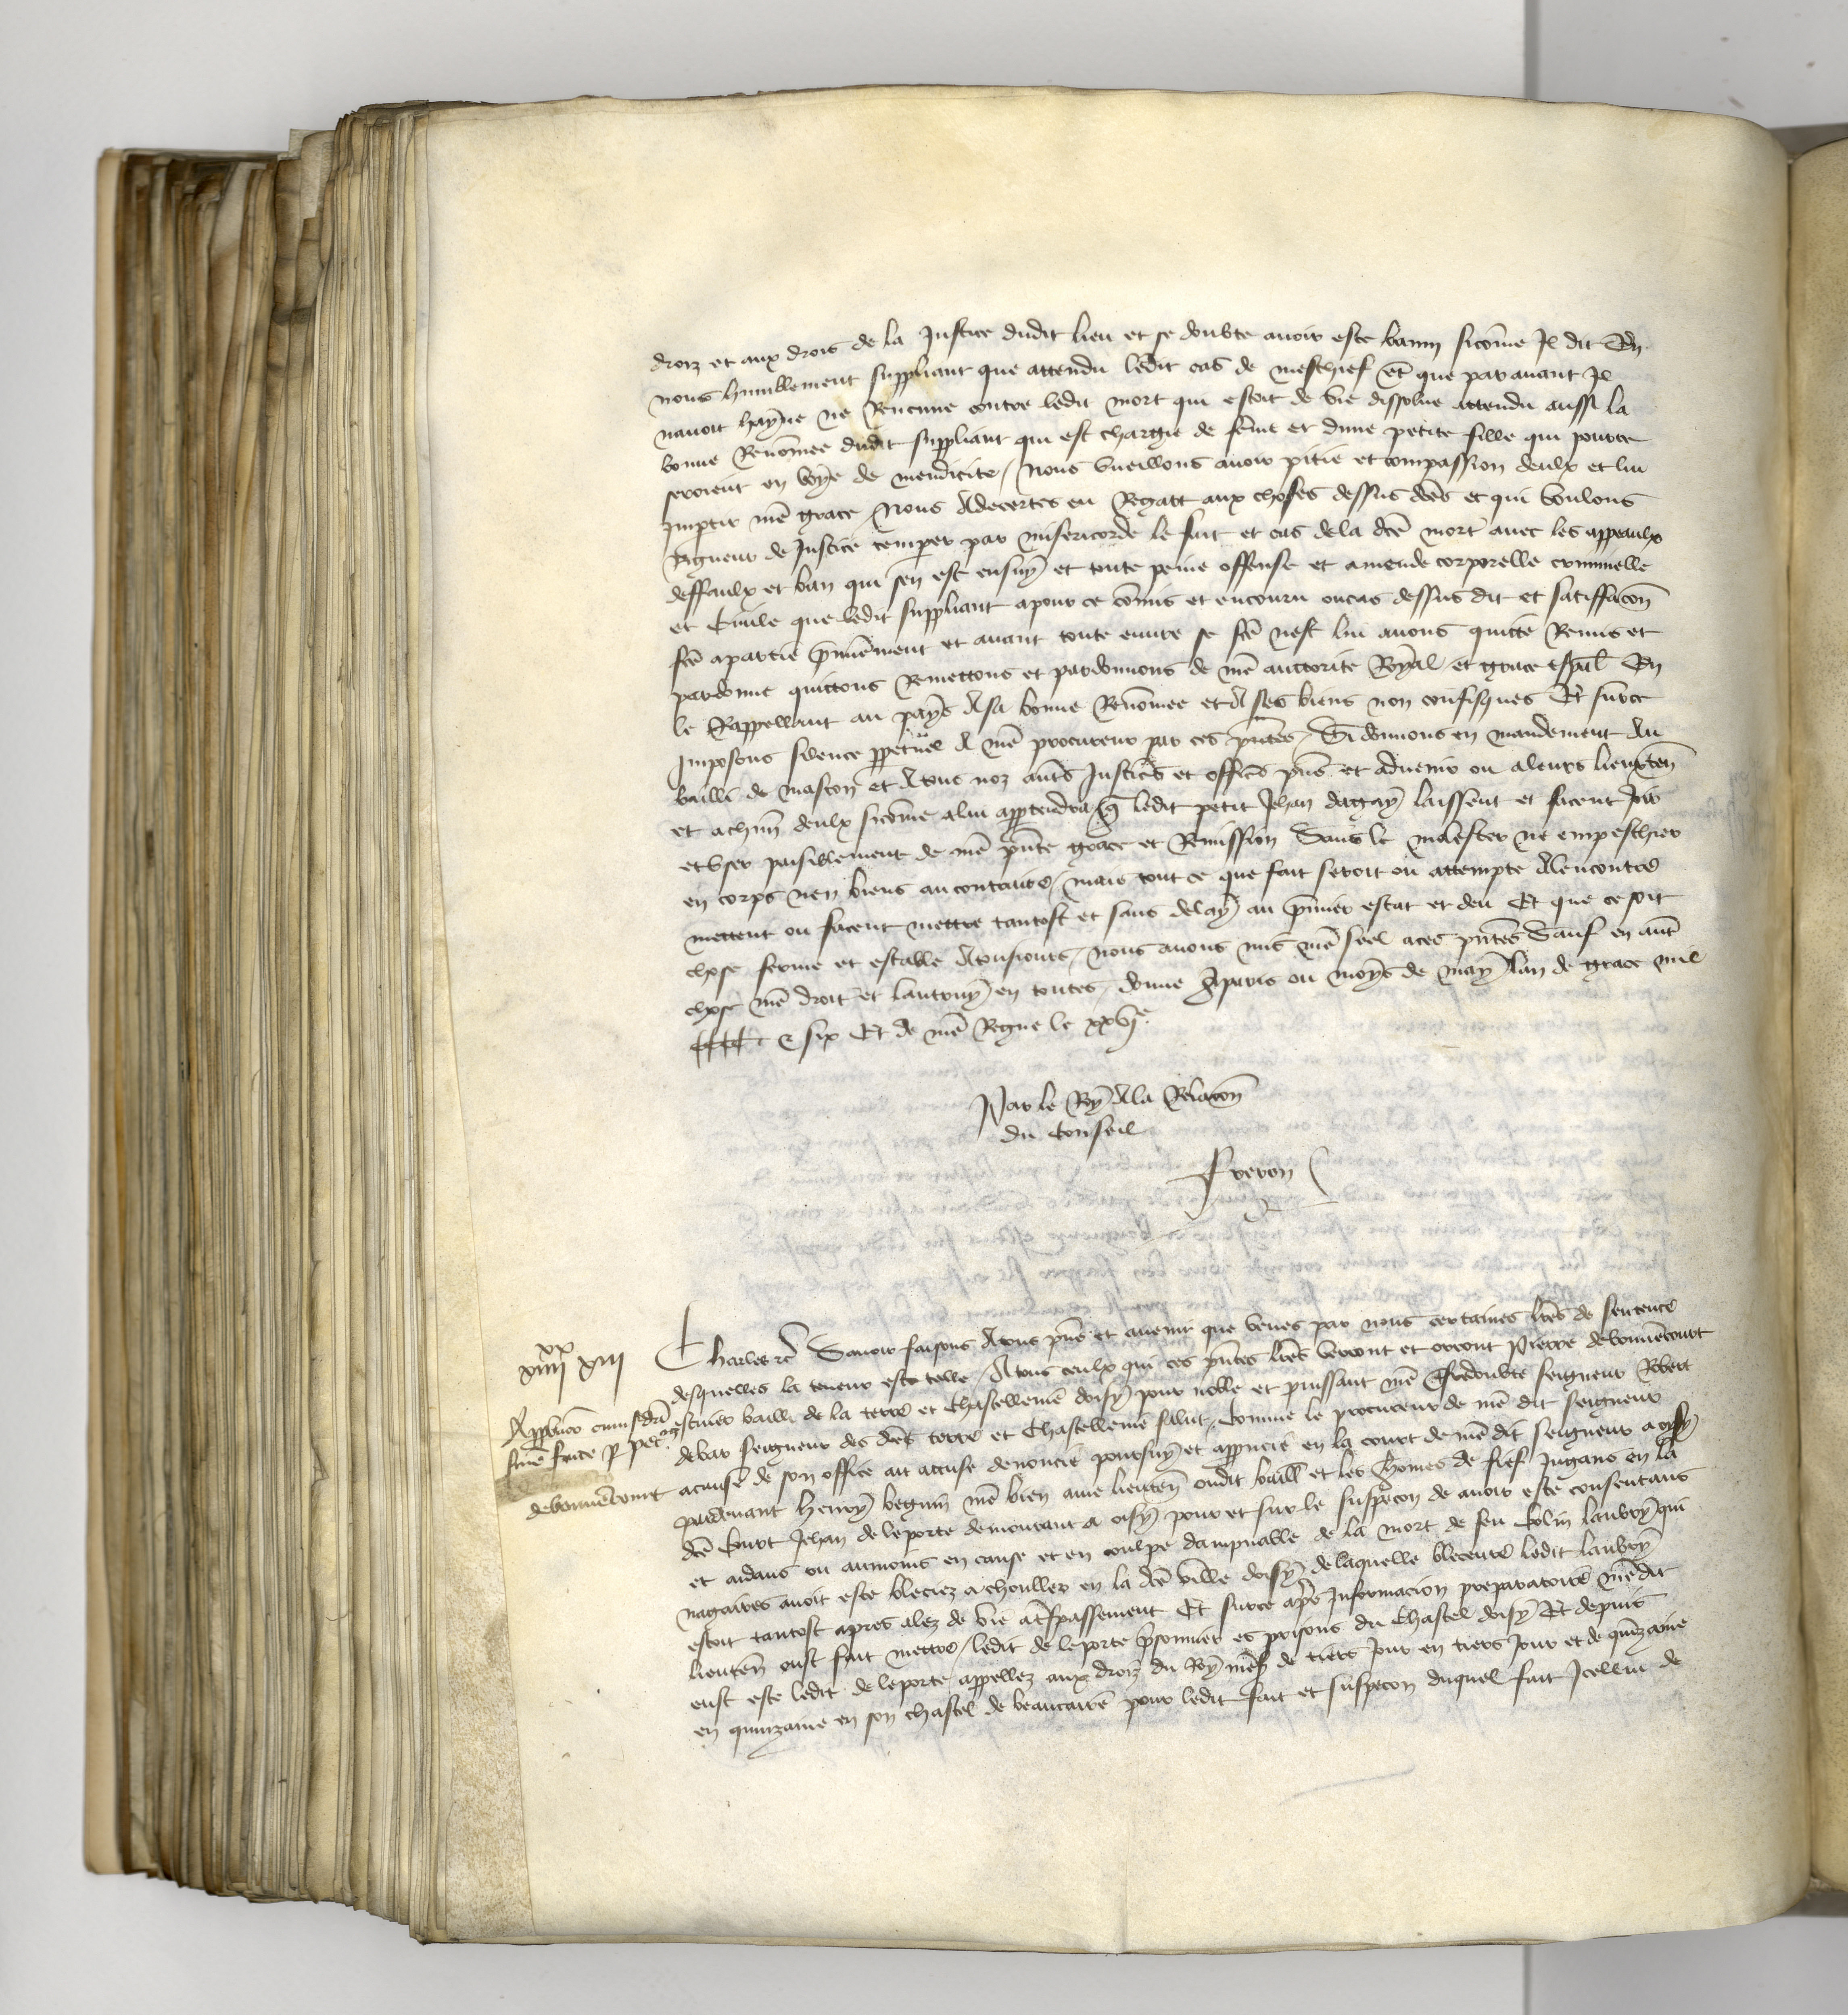 droiz et aux drois de la Justice dudit lieu et se doubte avoir este banny sicõme Il dit En
nous humblement suppliant que attendu ledit cas de meschief et que par avant Il
navoit hayne ne Rencune contre ledit mort qui estoit de vie dissolue attendu aussi la
bonne Renõmee dudit suppliant qui est chargie de fẽme et dune petite fille qui pource
seroient en voye de mendicite / Nous vueillons avoir pitie et compassion deulx et lui
Impartir nrẽ grace / Nous Adecertes eu Regart aux choses dessus dcẽs et qui voulons
Rigueur de Justice temperer par misericorde le fait et cas dela dcẽ mort avec les appeaulx
deffaulx et ban qui sen est ensuy et toute peine offense et amende corporelle criminelle
et Civile que ledit suppliant apour ce cõmis et encouru oucas dessus dit et satiffacõn
fcẽ apartie p̃miẽrement et avant toute euvre se fcẽ nest lui avons quitte Remis et
pardonne quittons Remettons et pardonnons de nrẽ auctorite Royal et grace esp̃al En
le Rappellant au pays Asa bonne Renõmee et A ses biens non confisques Et surce
Imposons silence ppetuel A nrẽ procureur par ces p̃ntes / Si donnons en mandement Au
bailli de mascon et Atous noz aut̃s Justiciẽs et officiẽs pñs et advenir ou aleurs lieuxten̄
et achũn deulx sicõme alui apptendra q̃ ledit petit Jehan dagay laissent et facent Joir
et user paisiblement de nrẽ p̃nte grace et Remission Sans le molester ne empeschier
en corps nen biens au contraire / mais tout ce que fait seroit ou attempte Alencontre
mettent ou facent mettre tantost et sans delay au p̃mier estat et deu Et que ce soit
chose ferme et estable Atousiours / nous avons mis nrẽ seel aces p̃ntes Sauf en aut̃
chose nrẽ droit et lautruy en toutes / donne Aparis ou moys de may lan de grace mil
CCCC & six Et de nrẽ Regne le xxvjᵉ.
Par le Roy Ala Relacõn
du Conseil
Freron
xx
iiii xiii
Charles ec̃ Savoir faisons Atous pñs et avenir que veues par nous certaines lrẽs de sentence
desquelles la teneur est telle / Atous ceulx qui ces p̃ntes lrẽs verront et orront Pierre de bonnẽcourt
escuier bailli de la terre et Chastellenie doisy pour noble et puissant mẽ tresredoubte seigneur Robert
debar seigneur des dcẽs terre et Chastellenie salut / Comme le procureur de mẽ dit seigneur
acause de son office ait accuse denoncie poursuy et approucie en la court de mẽ dit seigneur a oisy
pardevant henry beguin nrẽ bien ame lieuten̄ oudit baill̃ et les hõmes de fief Jugans en la
dcẽ Court Jehan de leporte demourant a oisy pour et sur le suspecon de avoir este consentans
et aidans ou aumoins en cause et en coulpe dampnable de la mort de feu Colin lanvoy qui
nagaires avoit este bleciez a choullez en la dcẽ ville doisy de laquelle blecure ledit lanvoy
estoit tantost apres alez de vie at̃spassement Et surce ap̃s Informacion preparatoire nrẽ dit
lieuten̄ eust fait mettre / ledit de leporte p̃sonnier es prisons du Chastel doisy Et depuis
eust este ledit de leporte appellez aux droiz du Roy nrẽ s̃ de tiers Jour en tiers Jour et de quinzaine
en quinzaine en son chastel de beaucaire pour ledit fait et suspecon duquel fait Icellui de
debonnẽcourt